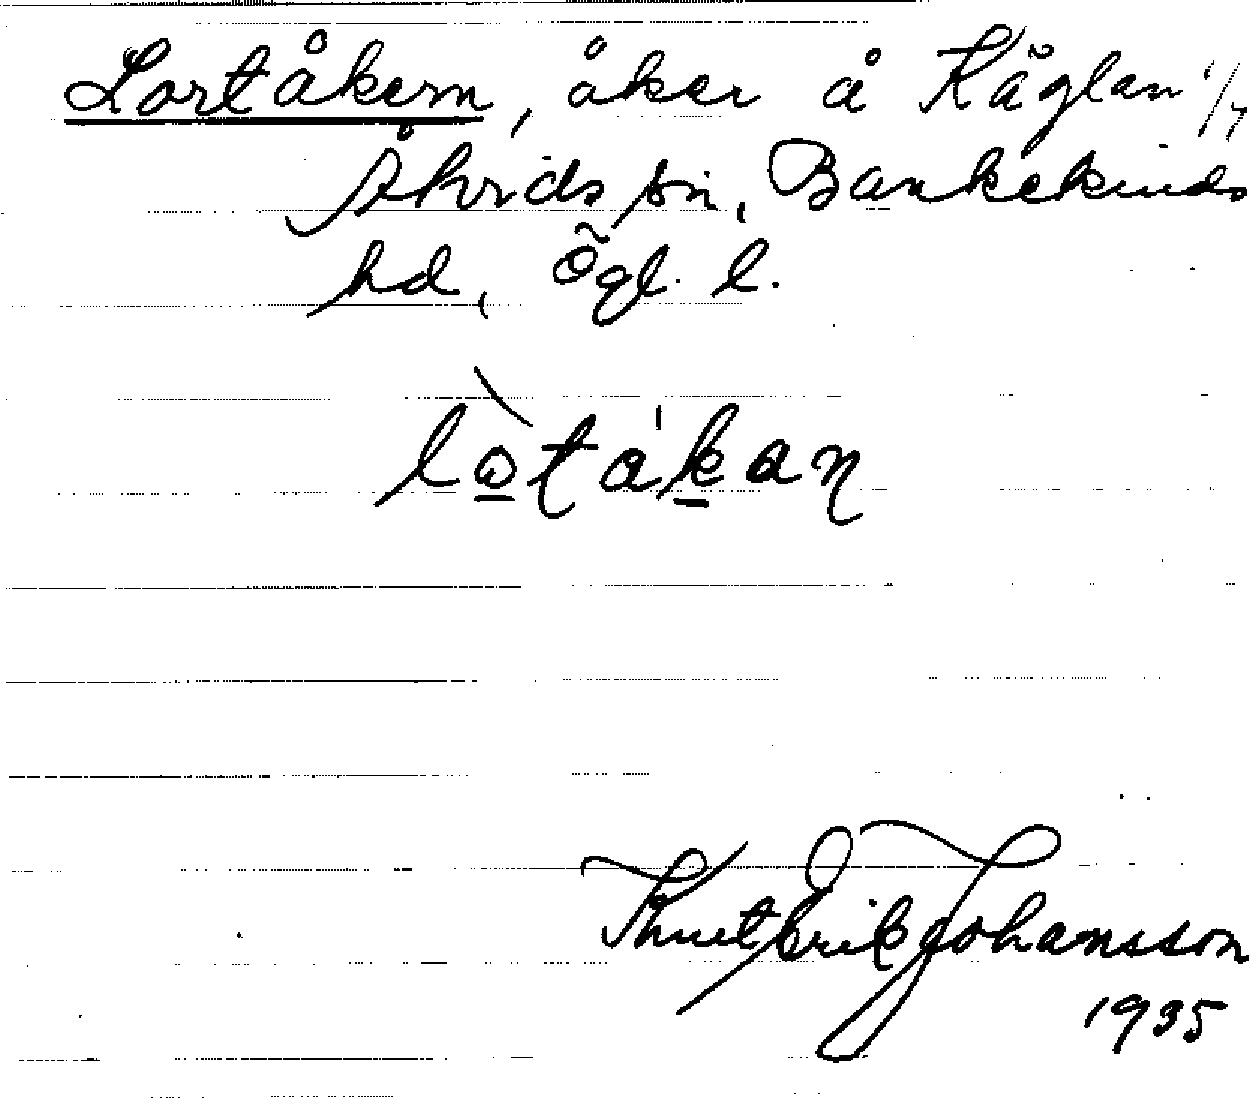 Lortåkern, åker å Käglan 1/4
Åkvids sn, Bankekinds
hd, Ögl. l.
lòtákan
Knut Erik Johansson
1935